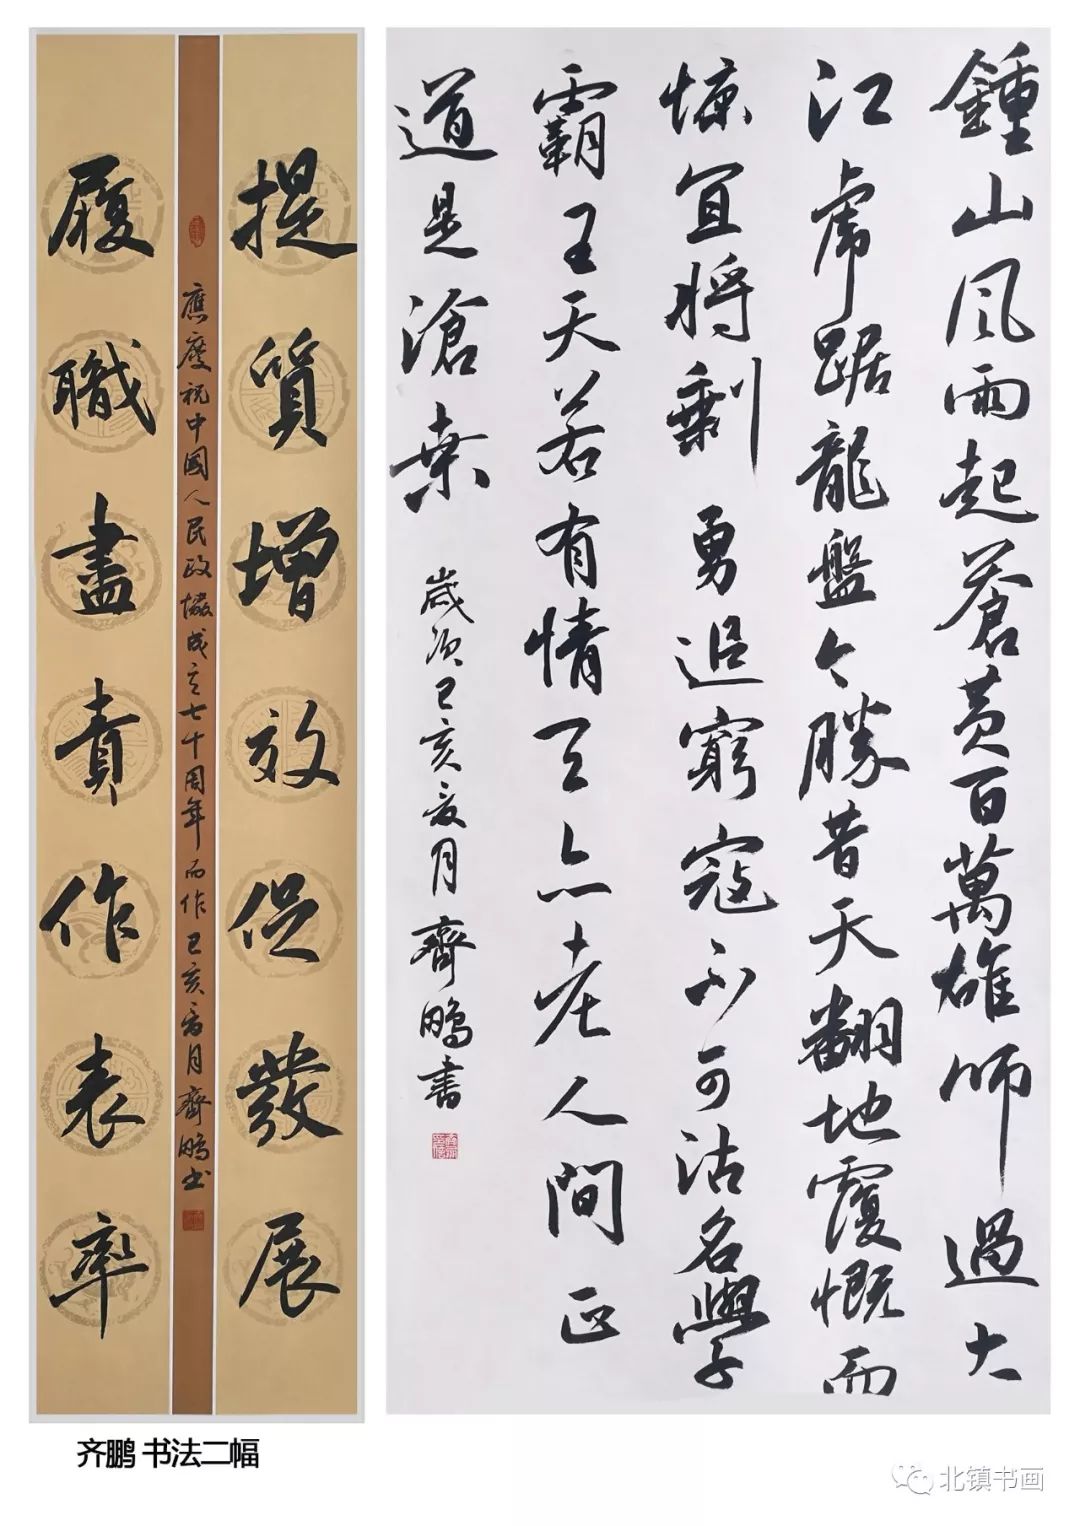 提質增效促發展
應慶祝中國人民政協成立七十周年而作己亥夏月齊鵬书
履職盡責作表率
鍾山风雨起蒼黄百萬雄師過大
江虎踞龍盤今勝昔天翻地覆慨而
慷宜將剩勇追窮寇不可沽名學
霸王天若有情天亦老人間正
道是滄桑 歲次己亥夏月齊鵬書
齐鹏 书法二幅
北镇书画